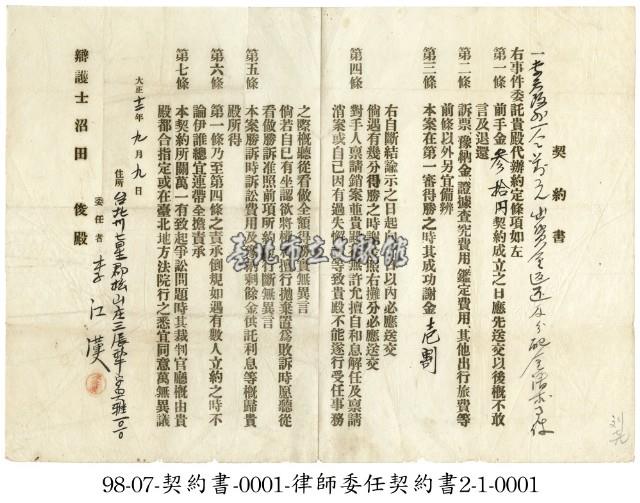 契約書
右事件委託貴殿代辦約定條項如左
第一條　前手金參拾円契約成立之日應先送交以後概不敢
言及退還
第二條　訴票、豫納金、證據查究費用、鑑定費用、其他出行旅費等
前條以外另宜備辨
第三條　本案在第一審得勝之時其成功謝金壱割
右自斷結諭示之日起以內必應送交
倘遇有幾分得勝之時照右攤分必應送交
第四條　對手人稟請銷案並貴殿無許允擅自和息解任及稟請
消案或自己因有過失致貴殿不能遂行受任事務
之際概應從看做全額得勝無異言
倘若自己有坐認欲將權利擅行拋棄置為敗訴時愿應從
看做勝訴准照前項所約斷無異言
第五條　本案勝訴時訴訟費用及剩餘金供託利息等概歸貴
殿所得
第六條　第一條乃至第四條之責承倒規如遇有數人立約之時不
論伊誰總宜連帶全擔責承
第七條　本契約所關萬一有致起爭訟問題時其裁判官廳概由貴
殿都合指定或在臺北地方法院行之悉宜同意萬無異議
大正十三年九月九日
住所台北州七星郡松山庄三張犁
委任者　李江漢
辯護士沼田　俊殿
臺北市立文獻館
98-07-契約書-0001-律師委任契約書2-1-0001